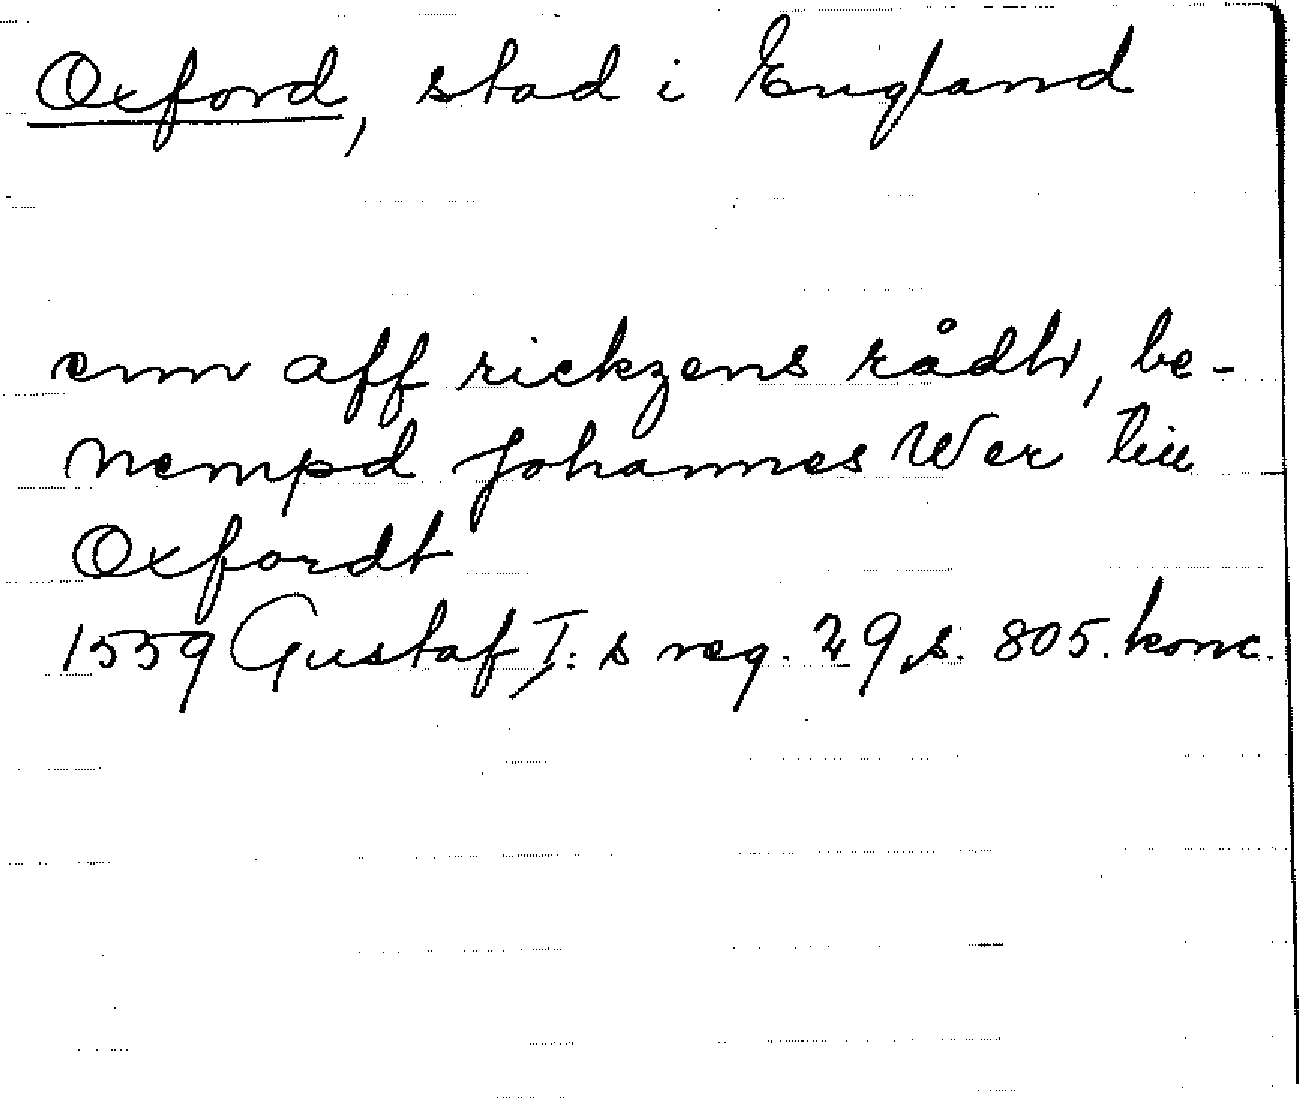 Oxford, stad i England
enn aff rickzens rådh, be-
nempd Johannes Wer till
Oxfordt
1559 Gustaf I:s reg. 29, s. 805. konc.